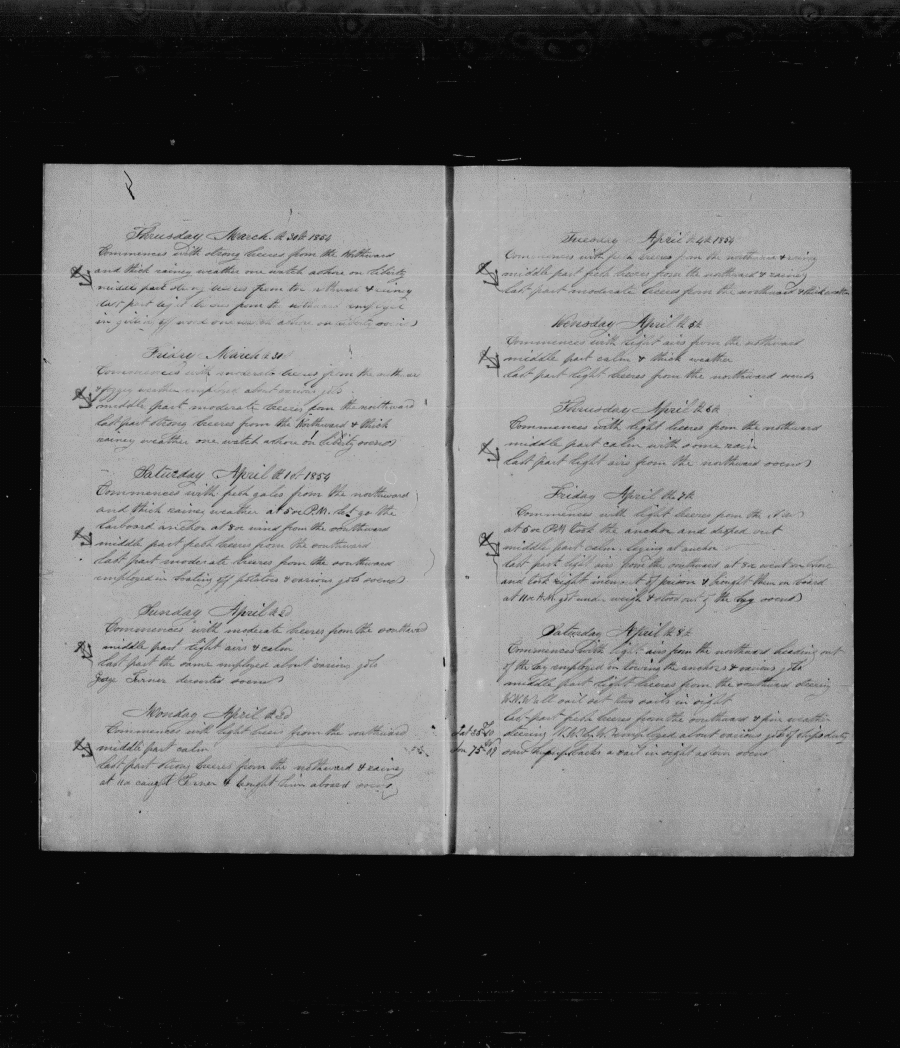 Thursday March th 30th 1854
Commences with strong breeses from the Northward
and thick rainey weather one watch ashore on liberty
middle part strong breeses from the & rainey
last part light breeses from the
in of wood one watch ashore on liberty so ends
Friday March th 31
Commences with moderate breeses from the
& foggy weather employed about various jobs
middle part moderate breeses from the northward
last part strong breeses from the Northward & thick
rainey weather one watch ashore on liberty so ends
Saturday April th 1st 1854
Commences with fresh gales from the northward
and thick rainey weather at 5 oc P.M. let go the
larboard anchor at 8 oc wind from the southward
middle part fresh breeses from the southward
last part moderate breeses from the southward
employed in boating off potatoes & various jobs so ends
Sunday April th 2d
Commences with moderate breeses from the southward
middle part light airs & calm
last part the same employed about various jobs
Turner deserted so ends
Monday April th 3d
Commences with light breeses from the southward
middle part calm
last part strong breeses from the northward & rainey
at 11 oc caught Turner & brought him aboard so ends
Tuesday April th 4th 1854
Commences with fresh breeses from the northward & rainey
middle part fresh breeses from the northward & rainey
last part moderate breeses from the northward & thick weather
Wensday April th 5th
Commences with light airs from the northward
middle part calm & thick weather
last part light breeses from the northward so ends
Thursday April th 6th
Commences with light breeses from the northward
middle part calm with some rain
last part light airs from the northward so ends
Friday April th 7th
Commences with light breeses from the
at 5 oc P.M. took the anchor and droped out
middle part calm laying at anchor
last part light airs from the southward at 8 oc went on shore
and took eight men out of prison & brought them on board
at 11 oc A.M. got under weigh & stood out of the bay so ends
Saturday April th 8th
Commences with light airs from the northward heading out
of the bay employed in stowing the anchors & various jobs
middle part light breeses from the southward steering
W.N.W. all sail set two sails in sight
last part fresh breeses from the southward & fine weather
steering employed about various jobs of ships duty
saw a sail in sight astern so ends
Lat 35-
Lon 75-19